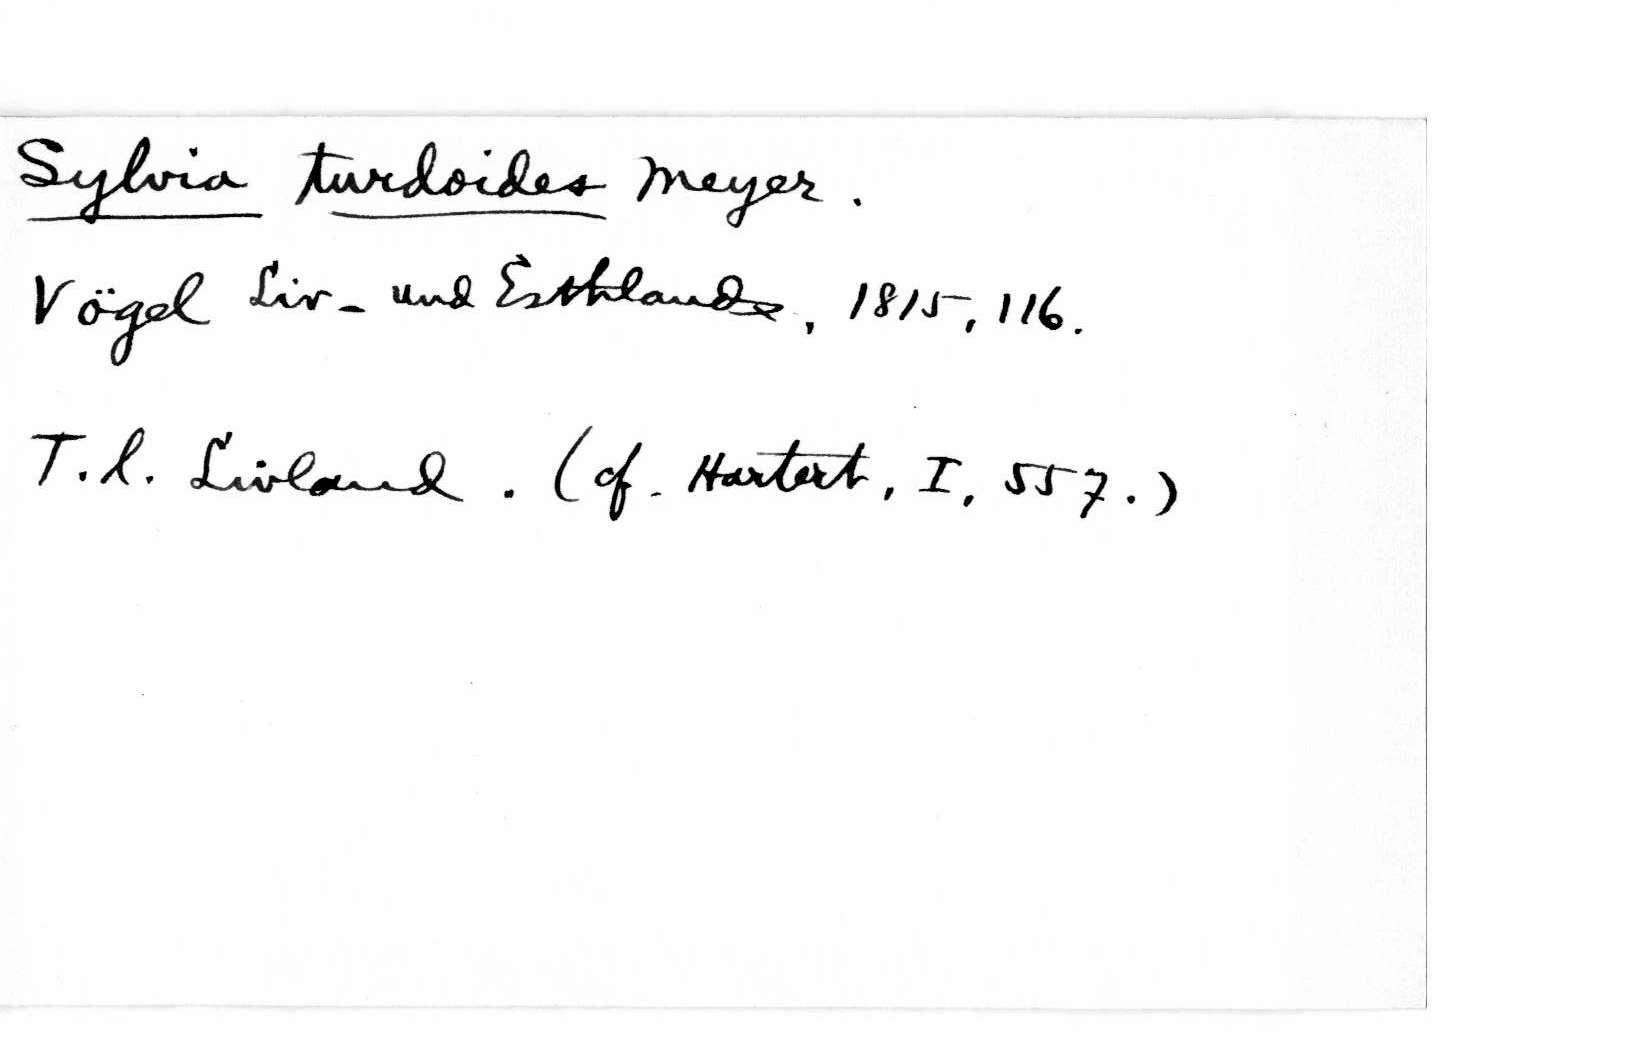 Sylvia turdoides Meyer.
Vögel Liv- und Esthlands, 1815, 116.
T.l. Livland. (cf. Hartert, I, 557.)